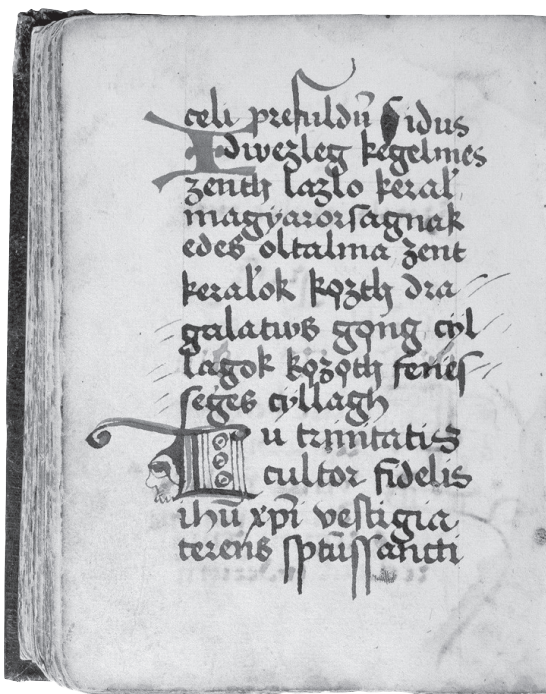 celi prefuldū sidus
Idwezleg kegelmes
zenth lazlo keral'
magyarorsagnak
edes oltalma zent
keral'ok kǫzth dra
galatws gǫng cyl
lagok kǫzǫth fenes
seges cyllagh
Tu trinitatis
cultor fidelis
ihū xpī vestigia
terens sptūssancti